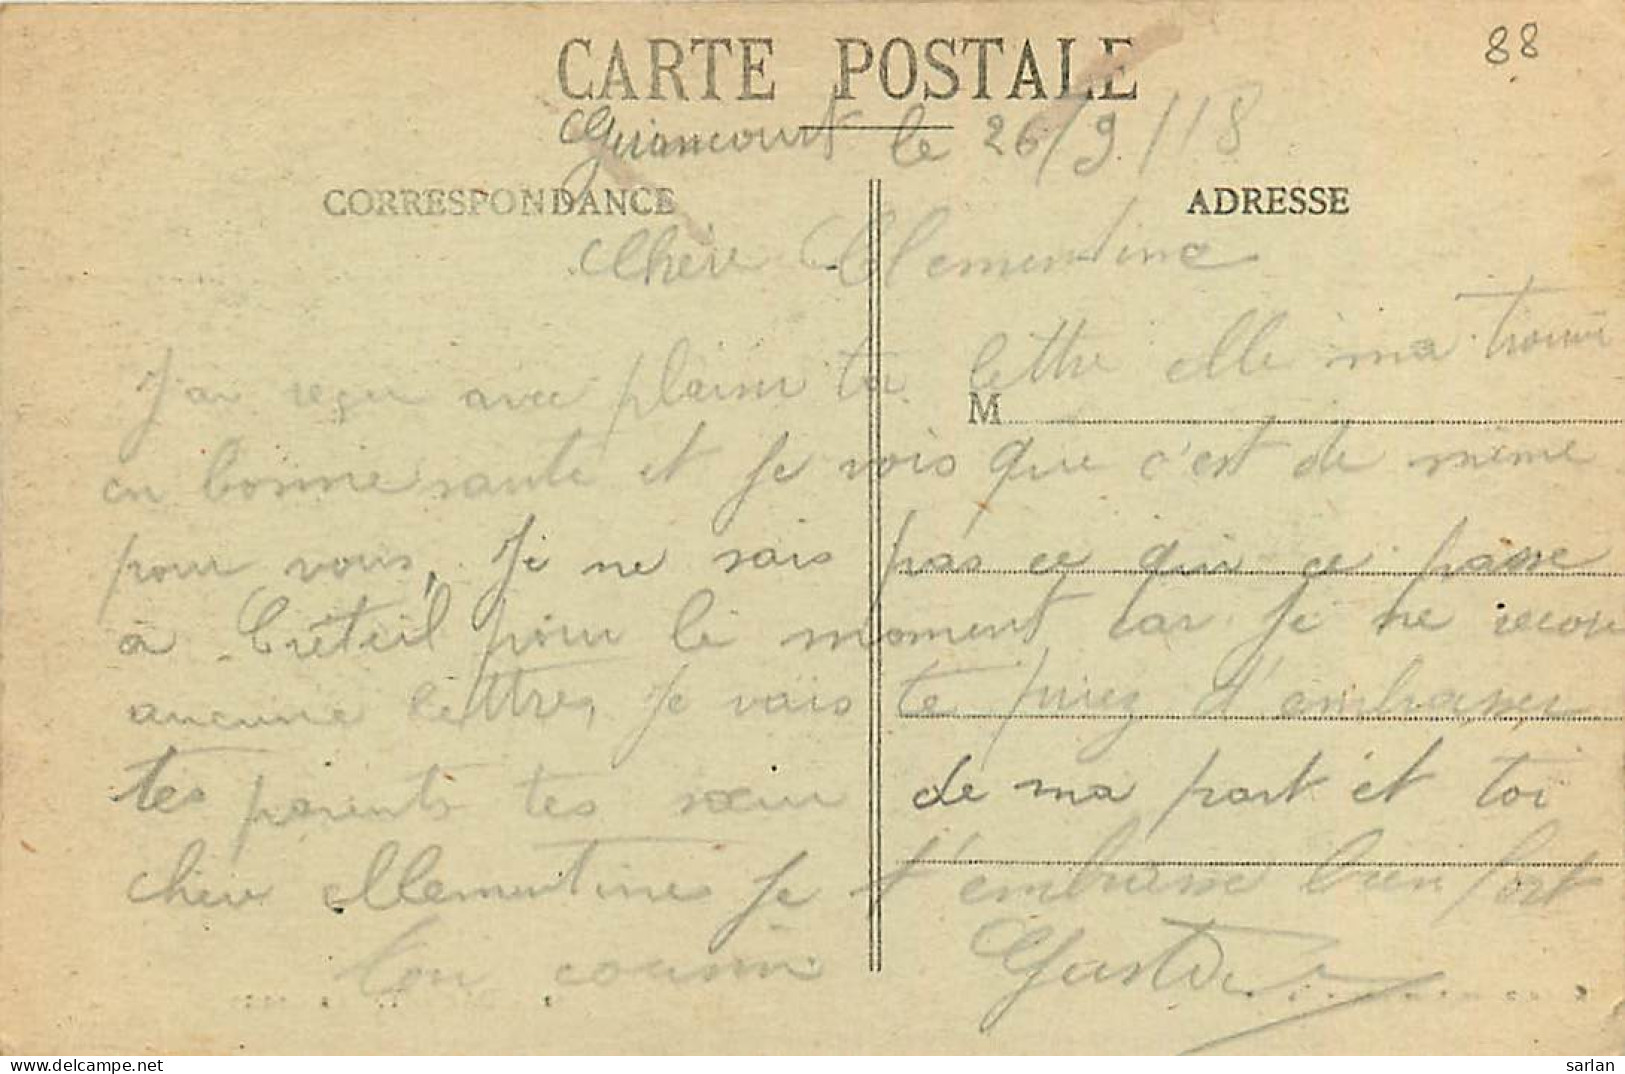 88
CARTE POSTALE
Girancourt le 26/9/18
CORRESPONDANCE
ADRESSE
Chère Clementine
J'ai reçu avec plaisir ta lettre elle ma trouvé
M
en bonne sante et je vois que c'est de même
pour vous, Je ne sais pas ce qui ce passe
à Créteil pour le moment car je ne recois
aucune lettres, Je vais te priez d'embrasser
tes parents tes sœur de ma part et toi
chère Clementine je t'embrasse bien fort
ton cousin Gaston
sarlan